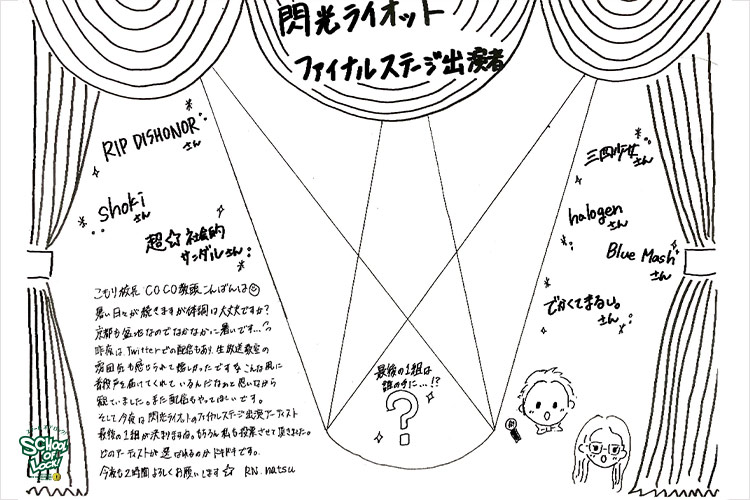 閃光ライオット
ファイナルステージ出演者
RIP DISHONOR
さん
shoki
さん
超☆社会的
サンダルさん
三四少女
さん
halogen
さん
Blue Mash
さん
でかくてまるい。
さん
こもり校長 COCO教頭こんばんは☺
暑い日々が続きますが体調は大丈夫ですか?
京都も盆地なのでなかなかに暑いです…
昨夜はTwitterでの配信もあり、生放送教室の
雰囲気も感じられて嬉しかったです。こんな風に
普段声を届けてくれているんだなぁと思いながら
観ていました。また配信もやってほしいです。
そして今夜は閃光ライオットのファイナルステージ出演アーティスト
最後の1組が決まりますね。もちろん私も投票させて頂きました。
どのアーティストが選ばれるのかドキドキです。
今夜も2時間よろしくお願いします☆ RN.natsu
最後の1組は
誰の手に…!?
?
SCHOOL
OF
LOCK!